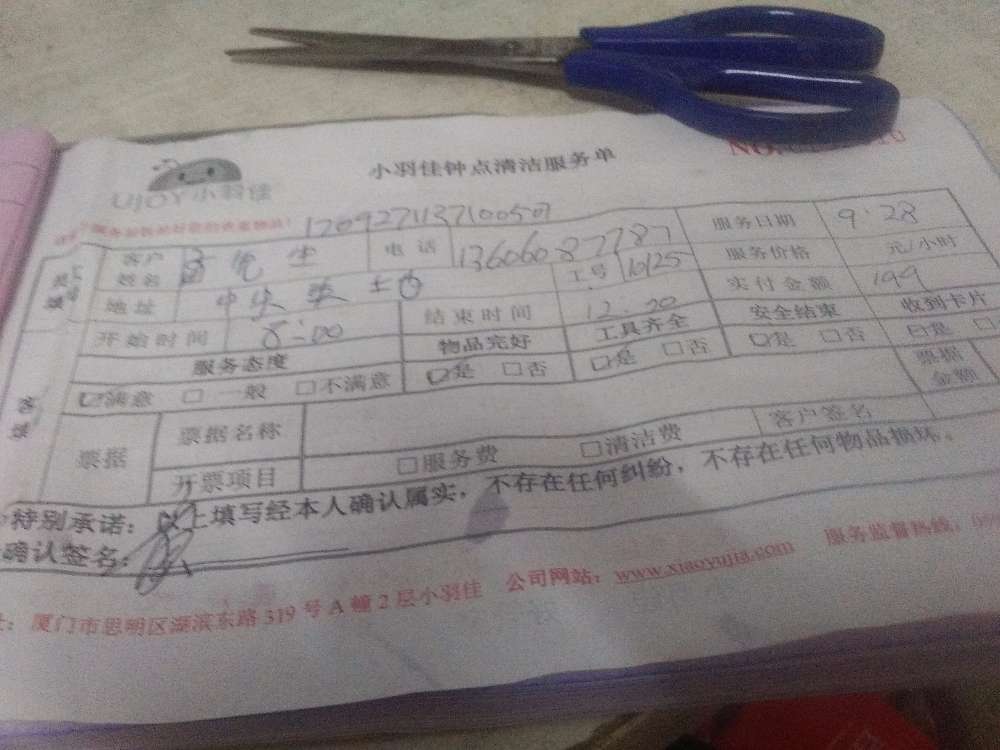 小羽佳钟点清洁服务单
NO.
UJOY小羽佳
客户姓名 先生 电话 13606087787 服务日期 9.28
地址 中央 工号 10125 服务价格 元/小时
开始时间 8:00 结束时间 12:00 实付金额 199
服务态度 物品完好 工具齐全 安全结束 收到卡片
满意 一般 不满意 是 否 是 否 是 否 是
票据 票据名称 票据金额
开票项目 服务费 清洁费 客户签名
特别承诺：以上填写经本人确认属实，不存在任何纠纷，不存在任何物品损坏。
确认签名：
厦门市思明区湖滨东路 319 号 A 幢 2 层小羽佳 公司网站：www.xiaoyujia.com 服务监督热线：